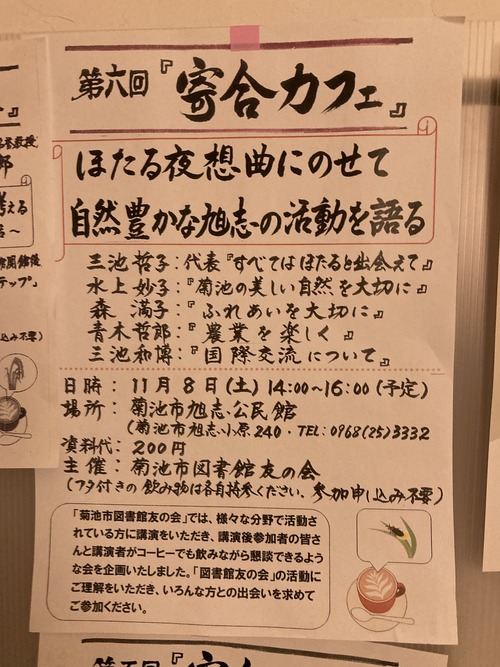 第六回『寄合カフェ』
ほたる夜想曲にのせて
自然豊かな旭志の活動を語る
三池哲子:代表『すべてはほたると出会えて』
水上妙子:『菊池の美しい自然を大切に』
森 満子:『ふれあいを大切に』
青木哲郎:『農業を楽しく』
三池和博:『国際交流について』
日時: 11月8日(土) 14:00~16:00(予定)
場所: 菊池市旭志公民館
(菊池市旭志小原240・TEL:0968(25)3332
資料代: 200円
主催: 菊池市図書館友の会
(フタ付きの飲み物は各自持参ください。参加申し込み不要)
「菊池市図書館友の会」では、様々な分野で活動さ
れている方に講演をいただき、講演後参加者の皆さ
んと講演者がコーヒーでも飲みながら懇談できるよう
な会を企画いたしました。「図書館友の会」の活動に
ご理解をいただき、いろんな方との出会いを求めて
ご参加ください。